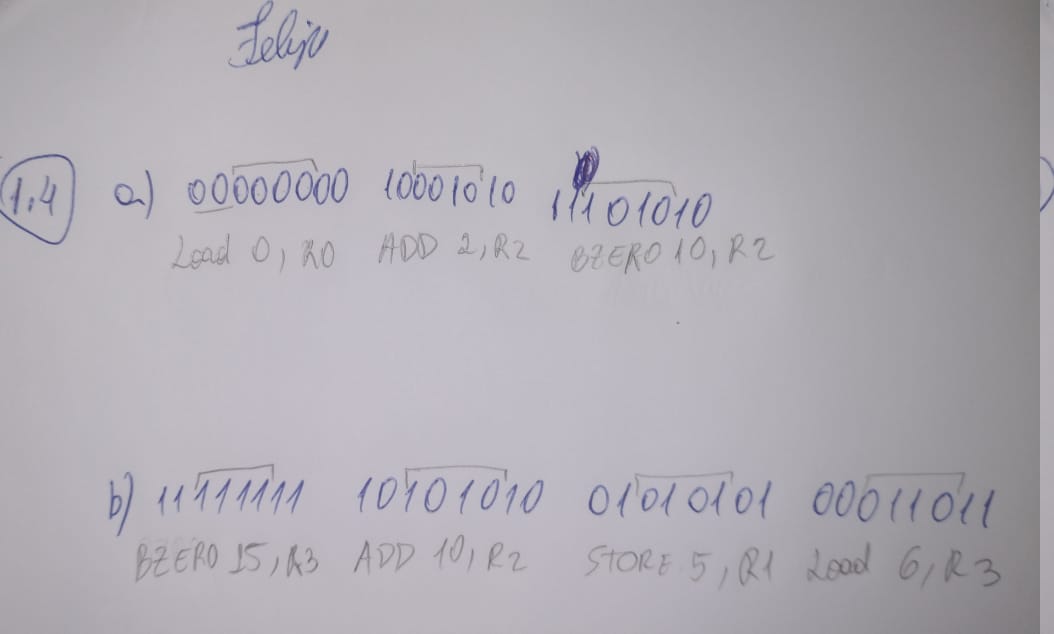 Felip
1.4 a) 00000000 10001010 11101010
Load 0, R0 ADD 2, R2 BZERO 10, R2
b) 11111111 10101010 01010101 00011011
BZERO 15, R3 ADD 10, R2 STORE 5, R1 Load 6, R3